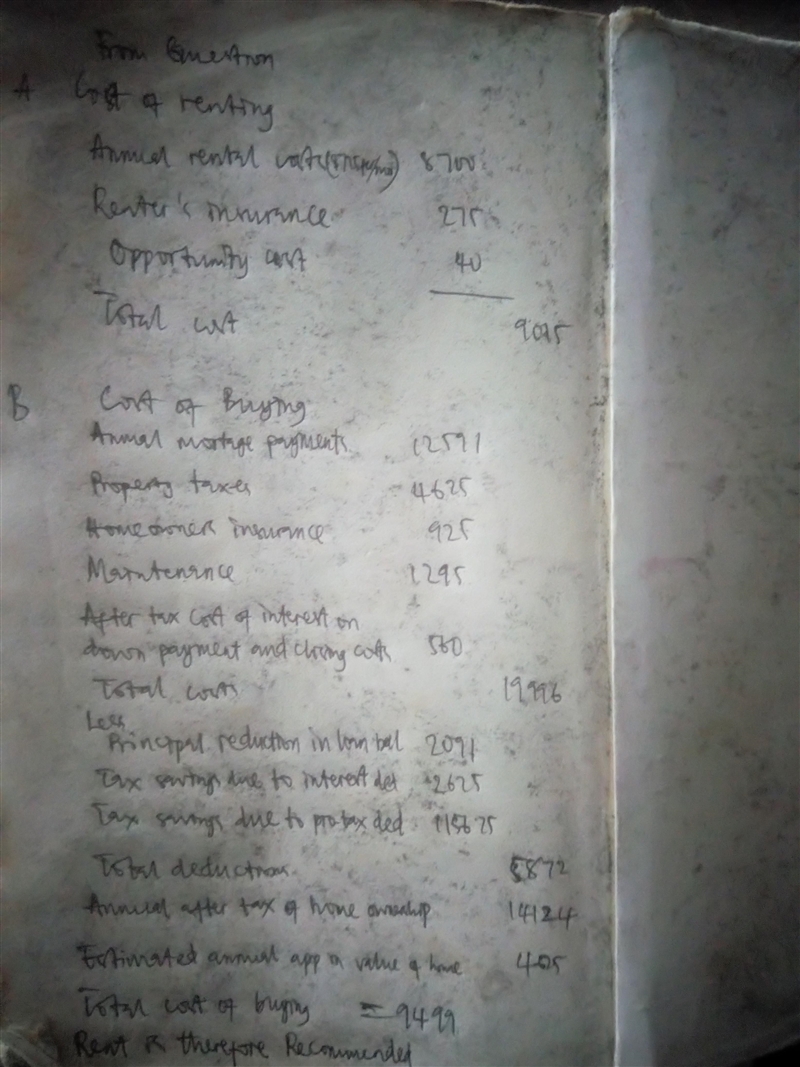 From Question
A Cost of renting
Annual rental cost 8700
Renter's insurance 275
Opportunity cost 40
Total cost 9015
B Cost of Buying
Annual mortage payments 12591
Property taxes 4625
Homeowners insurance 925
Maintenance 1295
After tax cost of interest on
down payment and closing costs 560
Total costs 19996
Less
Principal reduction in loan bal 2091
Tax savings due to interest ded 2625
Tax savings due to pro tax ded 1156 25
Total deductions 5872
Annual after tax of home ownership 14124
Estimated annual app on value of home
Total cost of buying = 9499
Rent is therefore Recommended